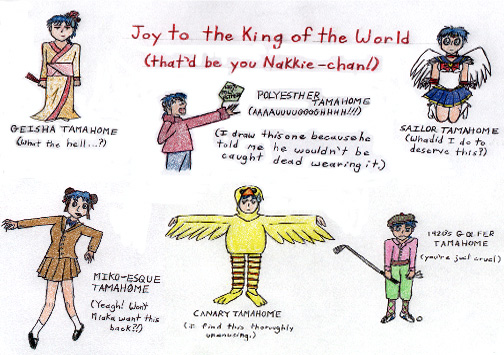 Joy to the King of the World
(that'd be you Nakkie-chan!)
GEISHA TAMAHOME
(What the hell...?)
POLYESTHER
TAMAHOME
(AAAAUUUUGGGGHHHH!!!)
(I draw this one because he
told me he wouldn't be
caught dead wearing it.)
SAILOR TAMAHOME
(Whadid I do to
deserve this?)
MIKO-ESQUE
TAMAHOME
(Yeagh! Won't
Miaka want this
back?!)
CANARY TAMAHOME
(I find this thoroughly
unamusing.)
1920's GOLFER
TAMAHOME
(you're just cruel)